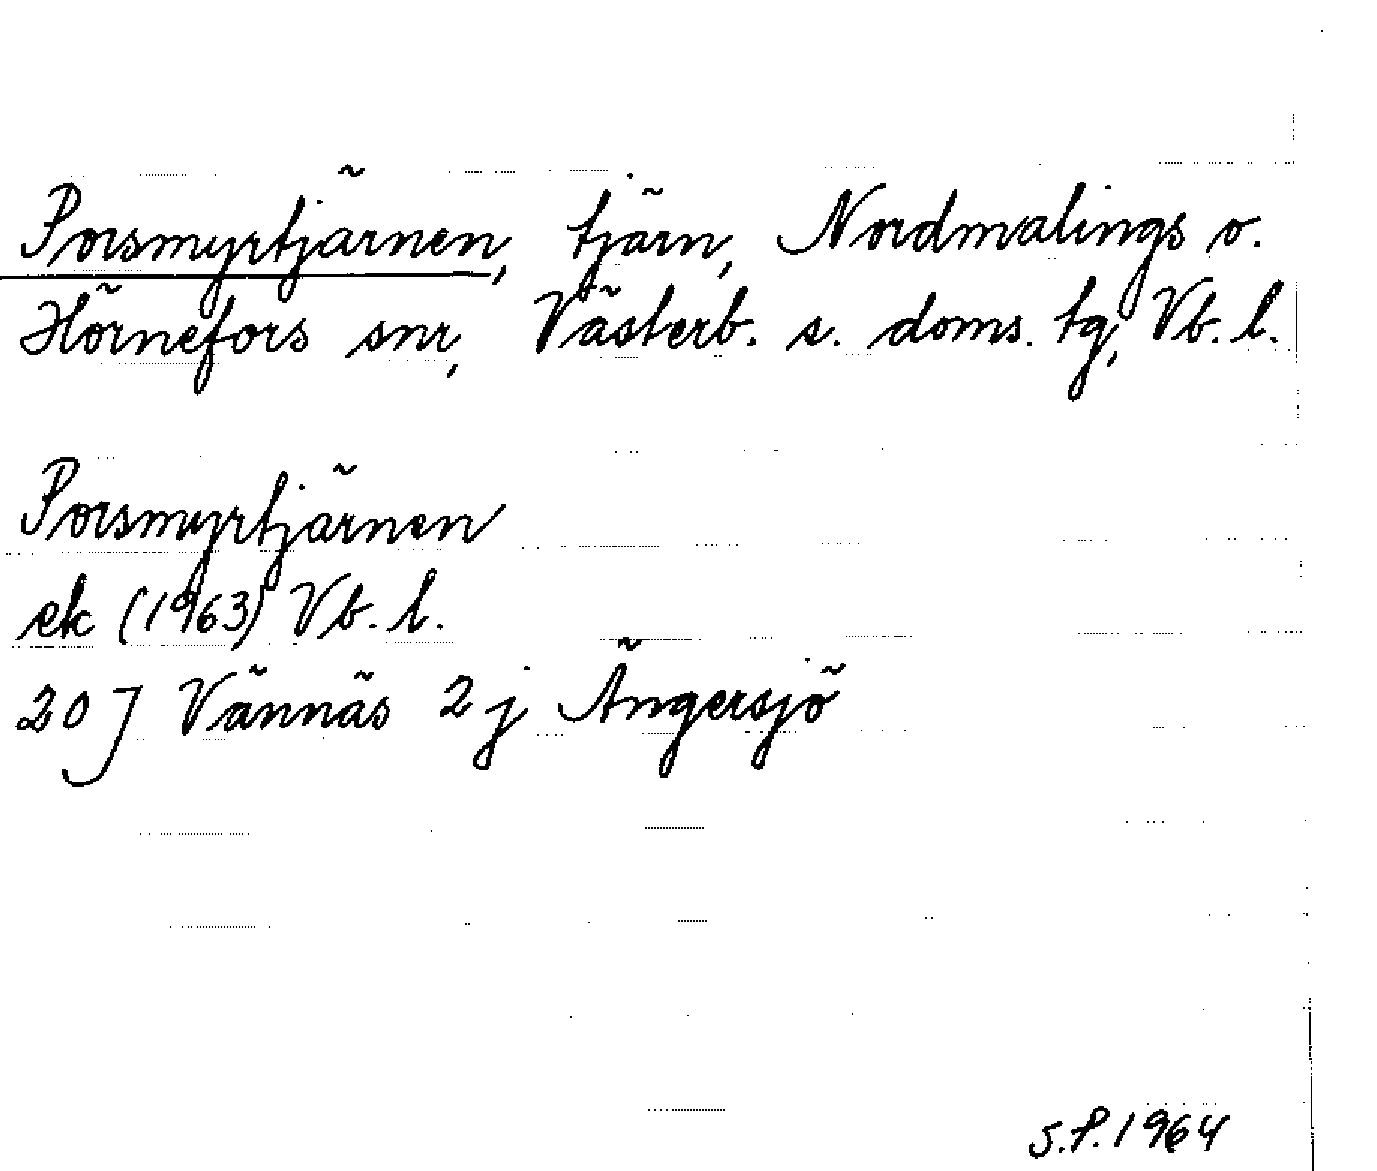 Porsmyrtjärnen, tjärn, Nordmalings o.
Hörnefors snr, Västerb. s. doms. tg, Vb. l.
Porsmyrtjärnen
ek (1963) Vb. l.
20 J Vännäs 2 j Ängersjö
S.P. 1964